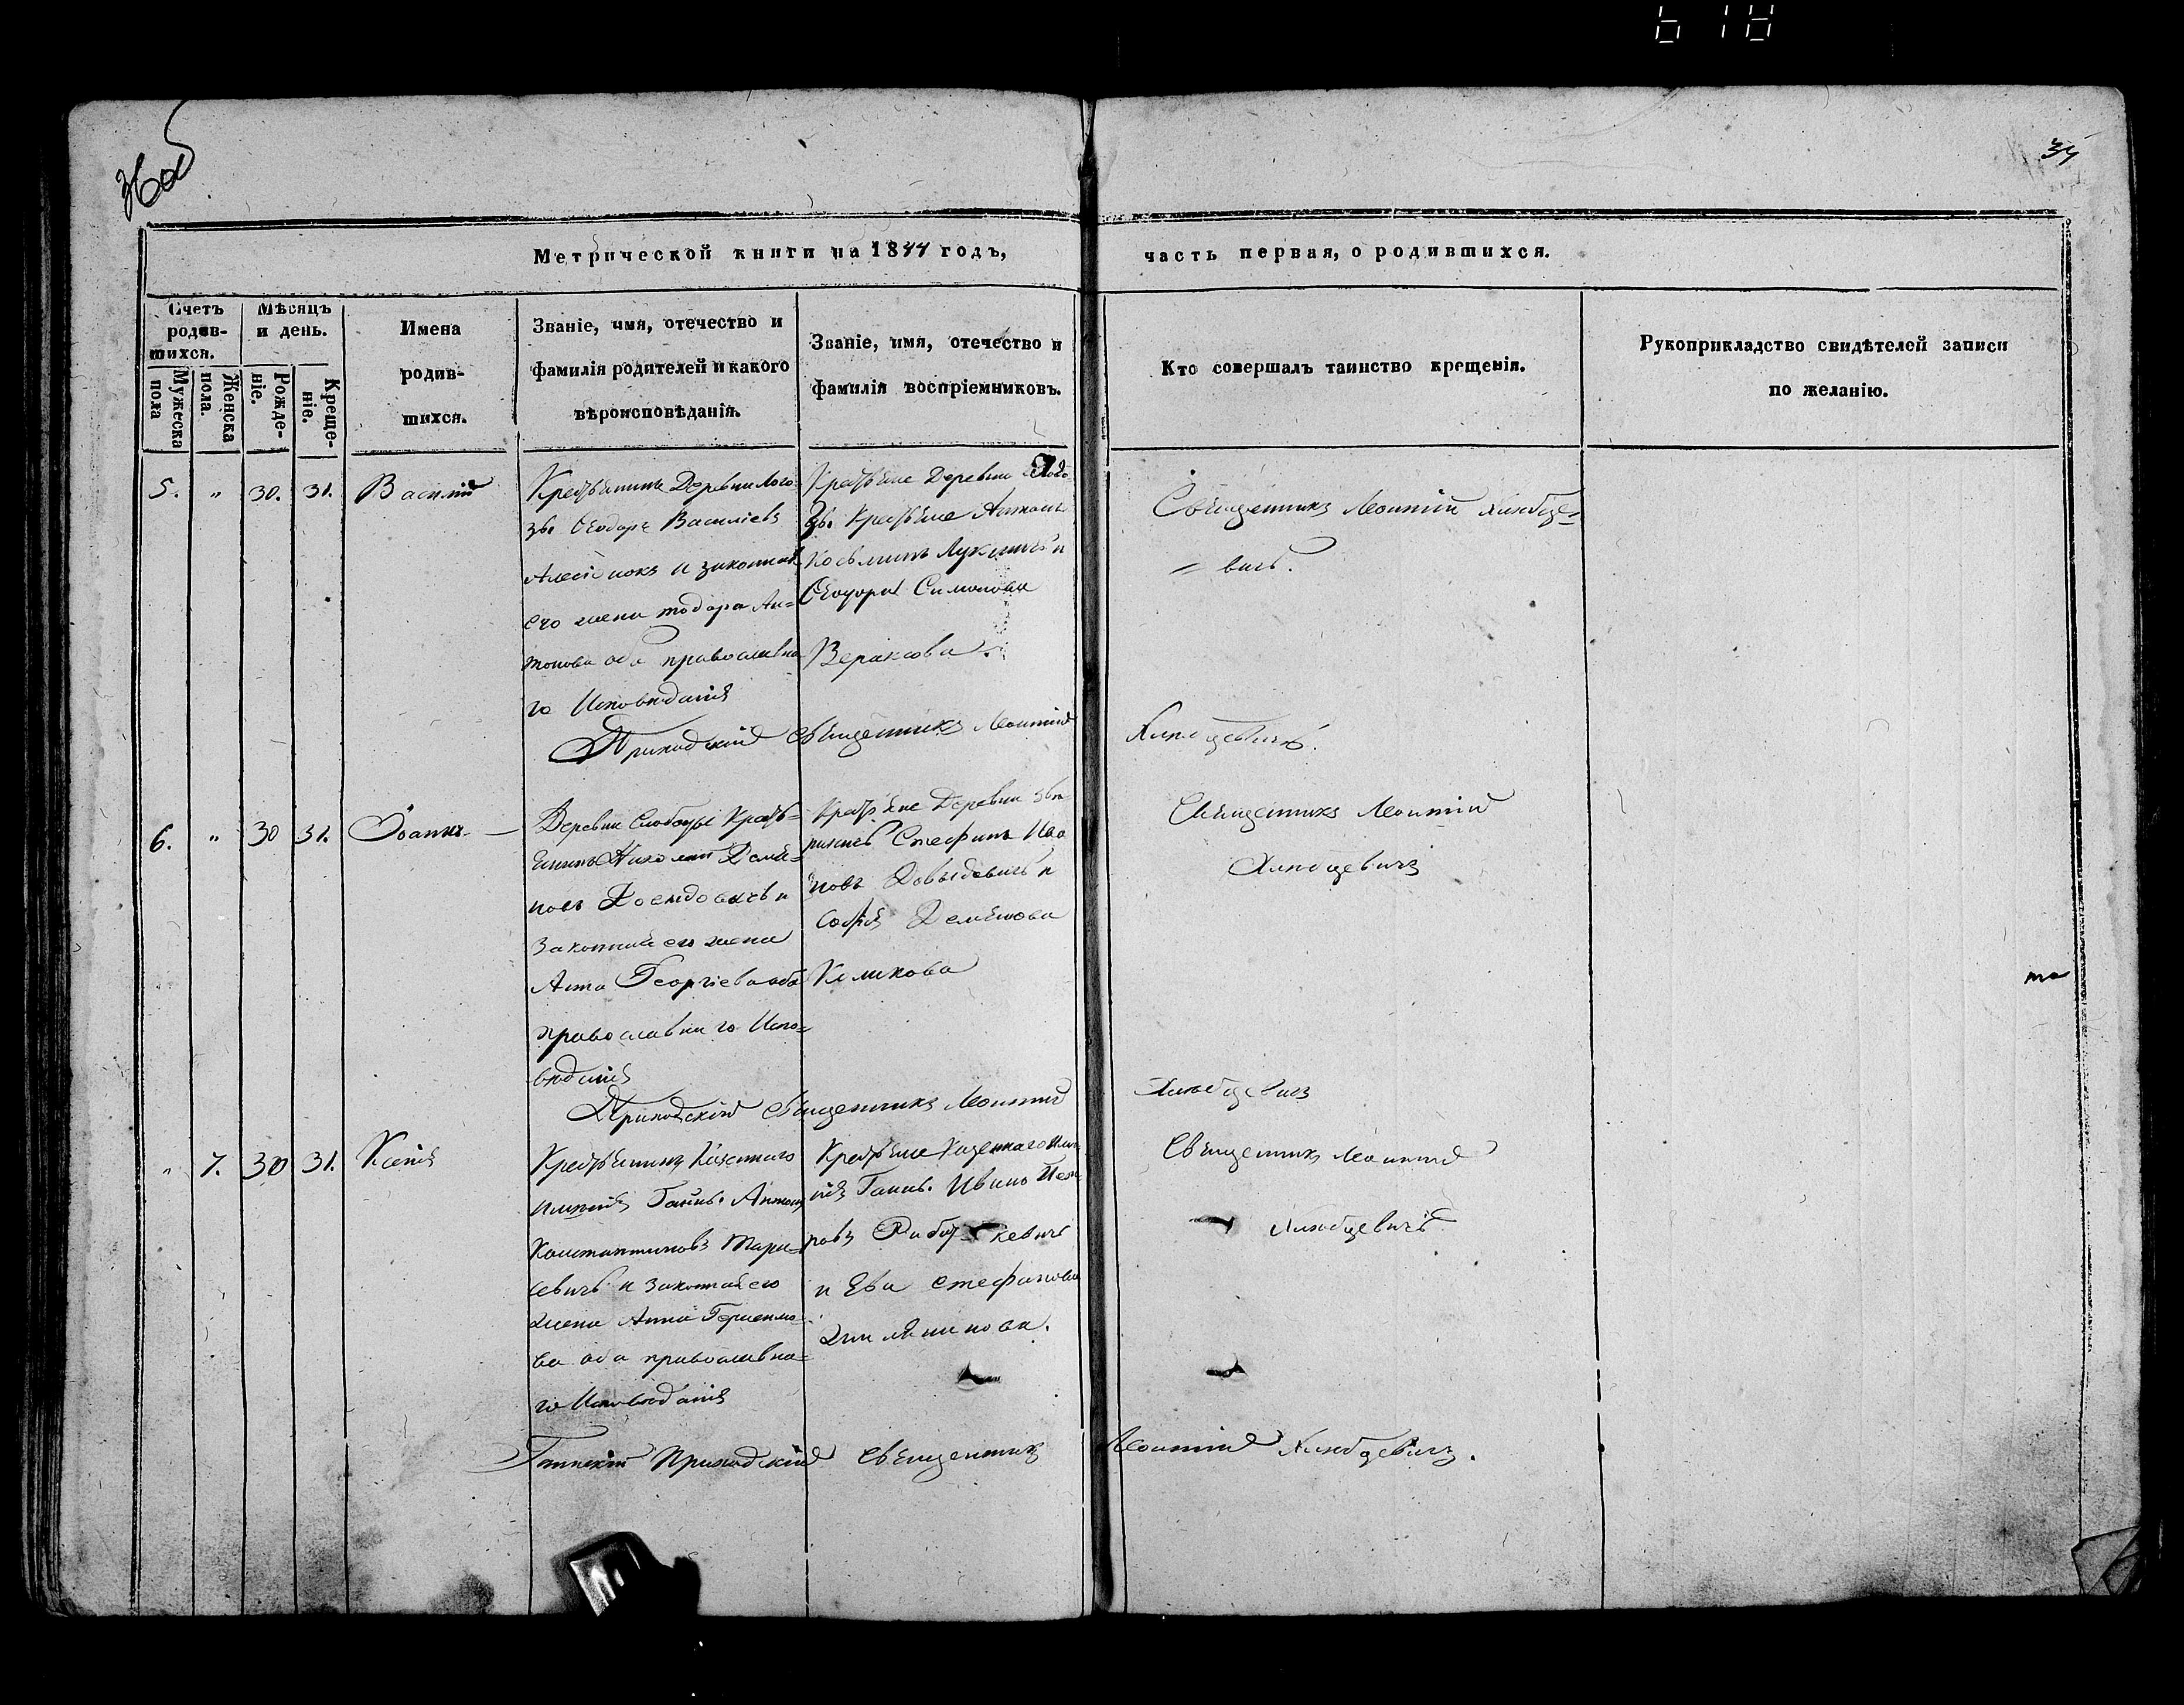 36об
34
Метрической книги на 1844 годъ,
часть первая, о родившихся.
Счетъ родив-шихся.
Мужеска пола
Женска пола.
Мѣсяцъ и день.
Рожде-ніе.
Креще-ніе.
Имена
родив-
шихся.
Званіе, имя, отечество и
фамилія родителей и какого
вѣроисповѣданія.
Званіе, имя, отечество и
фамилія воспріемниковъ.
Кто совершалъ таинство крещенія.
Рукоприкладство свидѣтелей записи
по желанію.
5. " 30. 31. Василій
Крестьянинъ Деревни Лого-
зы Ѳеодоръ Василіевъ
и законная
его жена Тодора Ан-
тонова оба православна
го Исповѣданія
Крестьяне Деревни
зы Крестьяне Антонъ
Косьминъ и
Симонова
Веракова.
Священникъ Леонтій Хлюбце-
= вичъ.
Приходскій Священникъ Леонтій
Хлюбцевичъ.
6. " 30 31. Іоаннъ
Деревни Слободы Кресть-
янинъ Николай Демья-
новъ и
Законная его жена
Анна Георгіева оба
православнаго Испо=
вѣданія
Крестьяне Деревни
Стефанъ Ива
новъ Довыдовичъ и
Софія Демьянова
Священникъ Леонтій
Хлюбцевичъ
Приходскій Священникъ Леонтій
Хлюбцевичъ
" 7. 30 31. Ксенія
Крестьянинъ Казеннаго
имѣнія Гайнъ. Антонъ
Константиновъ Тара-
севичъ и Законная его
жена Анна
ва оба православна=
го Исповѣданія
Крестьяне Казеннаго Имѣ
нія Гаинъ. Иванъ Пет
ровъ
и Ева Стефанова
Священникъ Леонтій
Хлюбцевичъ
Гаинскій Приходскій Священникъ
Леонтій Хлюбцевичъ.